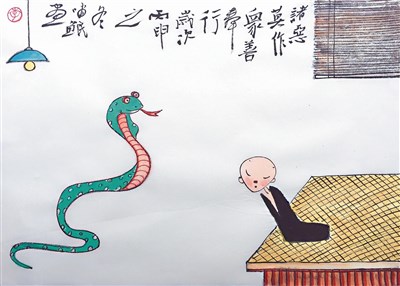 諸惡
莫作
衆善
奉
行
歲次
丙申
之
冬
畫